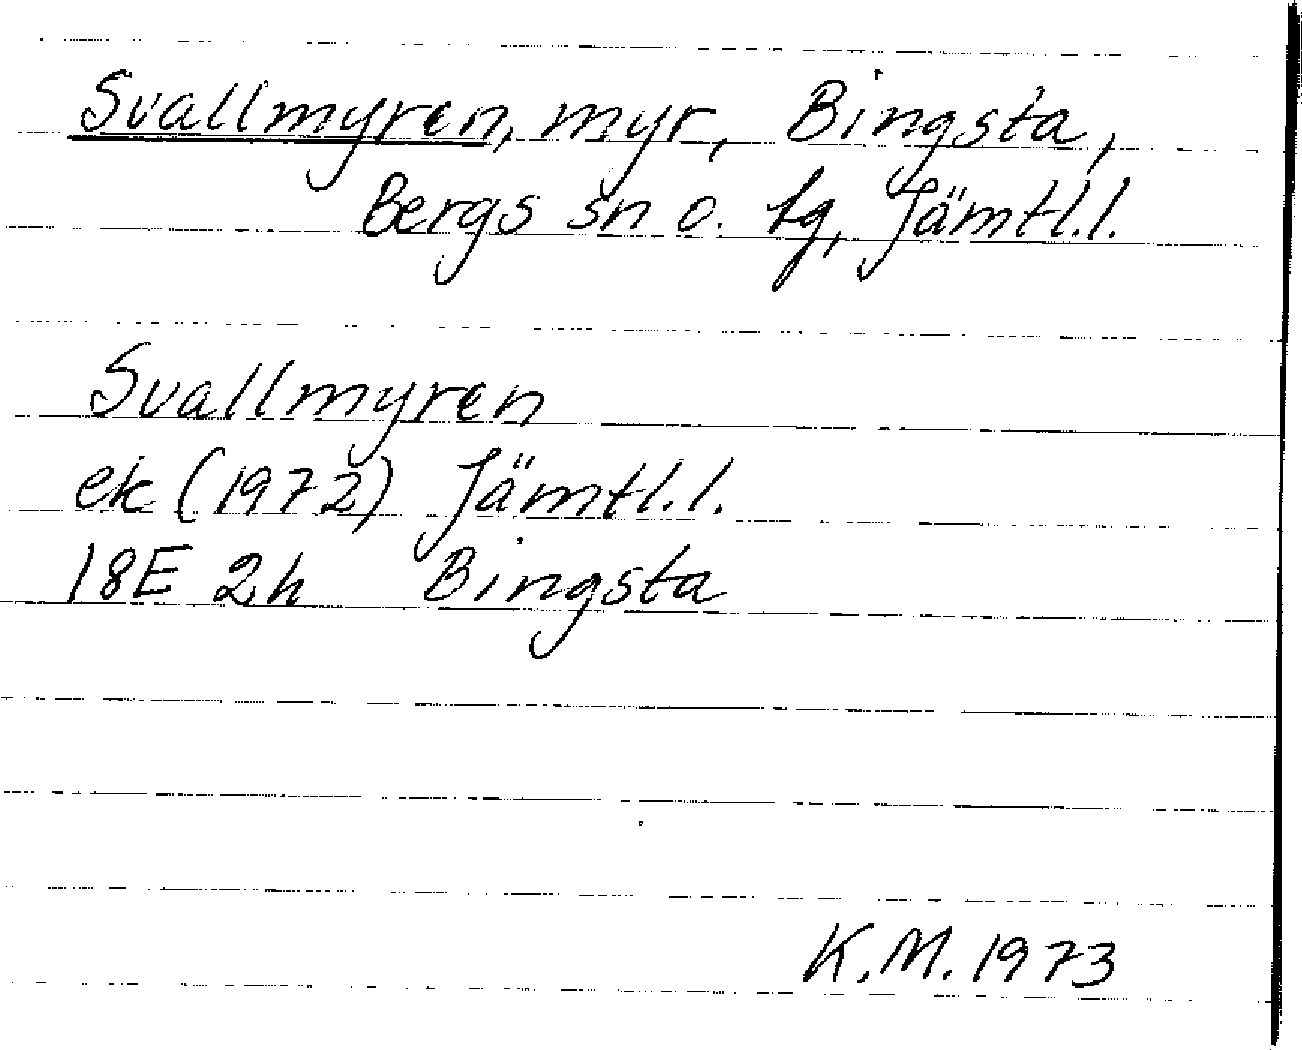 Svallmyren, myr, Bingsta,
Bergs sn o. tg, Jämtl.l.
Svallmyren
ek (1972) Jämtl.l.
18E 2h Bingsta
K.M. 1973